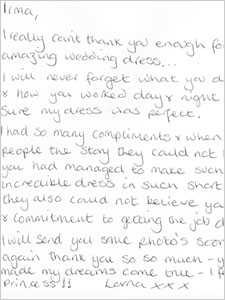 Irma,
I really can't thank you enough fo
amazing wedding dress...
I will never forget what you d
r how you worked day r night
sure my dress was perfect.
I had so many compliments r when
people the story they could not
you had managed to make such
incredible dress in such short
they also could not believe you
r commitment to getting the job d
I will send you some photo's soon
again thank you so so much - y
made my dreams come true - I f
princess!! Lorna xxx